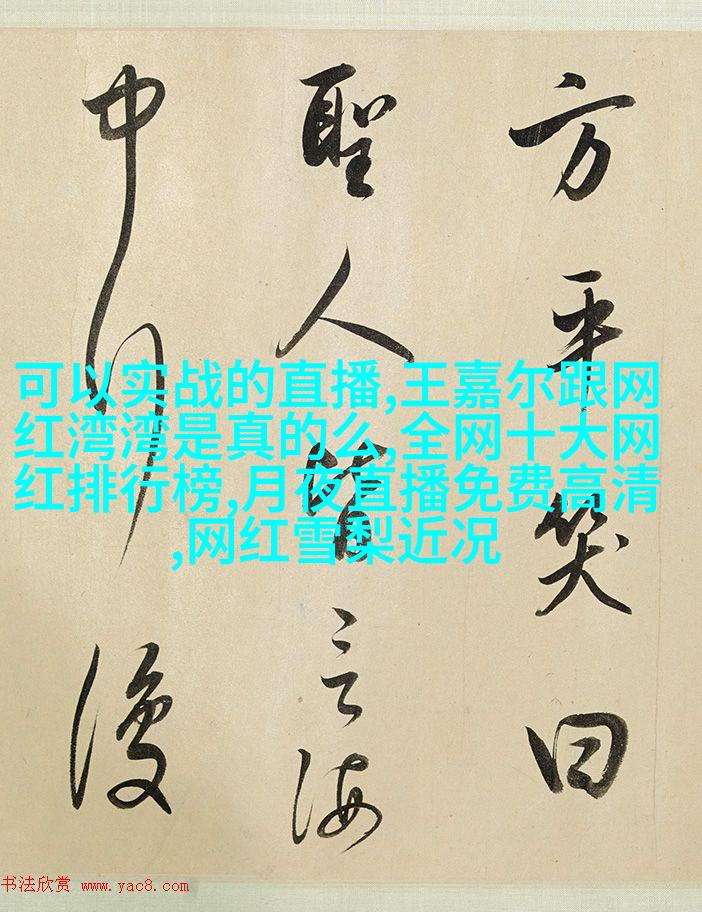 方平笑曰
聖人皆言海
中行復
可以实战的直播,王嘉尔跟网
红湾湾是真的么,全网十大网
红排行榜,月夜直播免费高清
,网红雪梨近况
书法欣赏 www.yac8.com